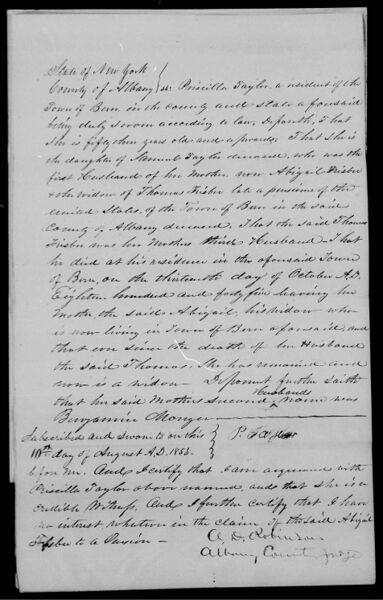 State of New York
County of Albany } ss Priscilla Taylor a resident of the
Town of Bern in the county and state aforesaid
being duly sworn according to law, Deposeth, That
She is fifty three years old and upwards; That she is
the daughter of Samuel Taylor deceased, who was the
first Husband of her Mother now Abigail Frisbe
& the widow of Thomas Frisbe late a pensioner of the
United States, of the Town of Bern in the said
County of Albany deceased. That the said Thomas
Frisbe was her Mothers third Husband. That
he died at his residence in the aforesaid Town
of Bern, on the thirteenth day of October A.D.
Eighteen hundred and forty five leaving her
Mother, the said Abigail, his widow who
is now living in Town of Bern aforesaid, and
that ever since the death of her Husband
the said Thomas. She has remained and
now is a widow — Deponent further saith
that her said Mothers second Husbands name was
Benjamin Monger
Subscribed and Sworn to on this } P. Taylor
day of August A.D. 1853. }
before me. And I certify that I am acquainted with
Priscilla Taylor above named, and that she is a
credible Witness. And I further certify that I have
no interest whatever in the claim of the said Abigail
Frisbe to a Pension —
A. D. Robinson
Albany County Judge